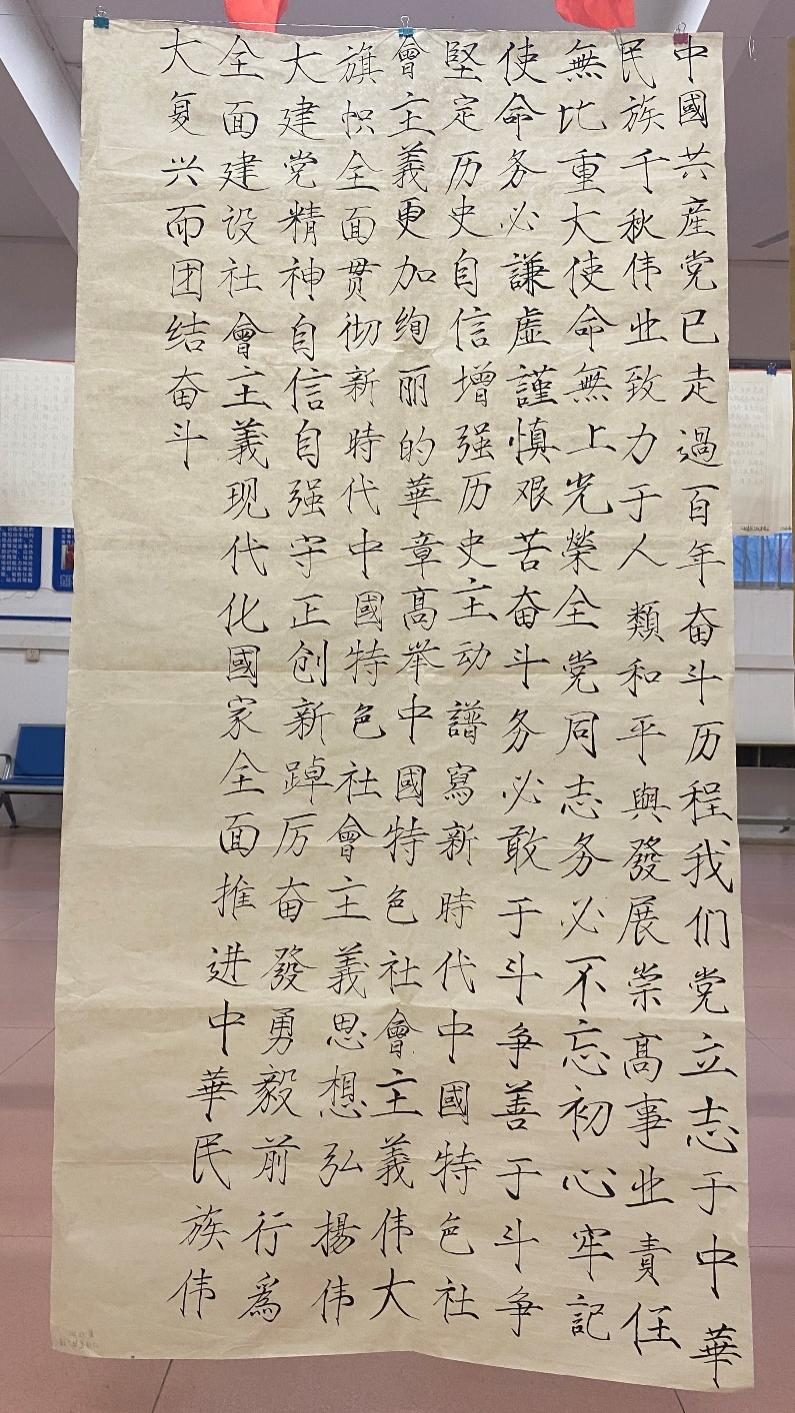 中國共産党已走過百年奋斗历程我们党立志于中華
民族千秋伟业致力于人類和平與發展崇高事业責任
無比重大使命無上光榮全党同志务必不忘初心牢記
使命务必謙虚謹慎艰苦奋斗务必敢于斗争善于斗争
堅定历史自信增强历史主动譜寫新時代中國特色社
會主義更加绚丽的華章高举中國特色社會主義伟大
旗帜全面贯彻新時代中國特色社會主義思想弘揚伟
大建党精神自信自强守正创新踔厉奋發勇毅前行爲
全面建设社會主義现代化國家全面推进中華民族伟
大复兴而团结奋斗